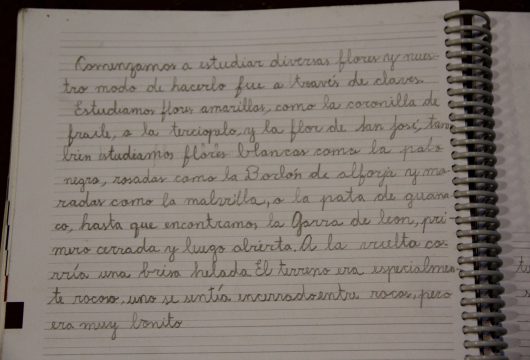 Comenzamos a estudiar diversas flores y nues-
tro modo de hacerlo fue a través de claves.
Estudiamos flores amarillas, como la coronilla de
fraile, o la terciopelo, y la flor de San José, tam
bien estudiamos flores blancas como la palo
negro, rosadas como la Borlón de alforja y mo-
radas como la malvilla, o la pata de guana
co, hasta que encontramos la Garra de leon, pri-
mero cerrada y luego abierta. A la vuelta co-
rría una brisa helada. El terreno era especialmen-
te rocoso, uno se sentía encerrado entre rocas, pero
era muy bonito